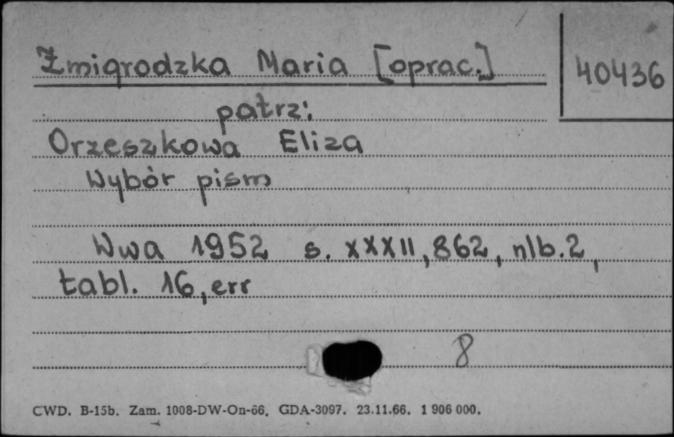 Żmigrodzka Maria [oprac.]
40436
patrz:
Orzeszkowa Eliza
Wybór pism
Wwa 1952 s. XXXII, 862, nlb. 2,
tabl. 16, err
8
CWD. B-15b. Zam. 1008-DW-On-66. GDA-3097. 23.11.66. 1 906 000.